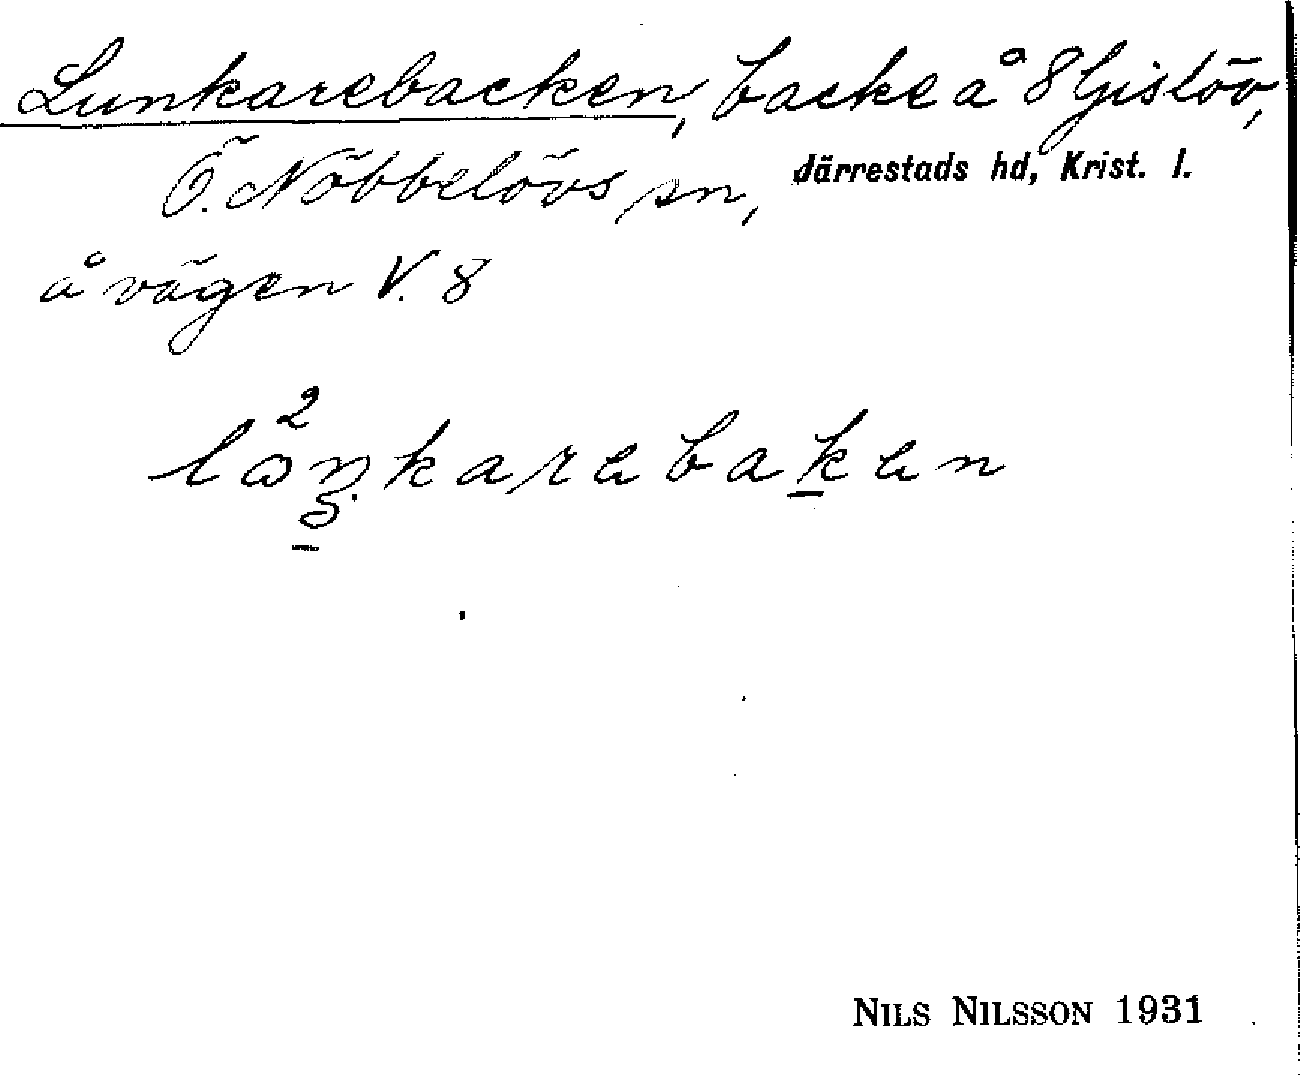 Lunkarebacken, backe å 8 Gislöv,
Ö. Nöbbelövs sn, därrestads hd, Krist. l.
å vägen V. 8
NILS NILSSON 1931